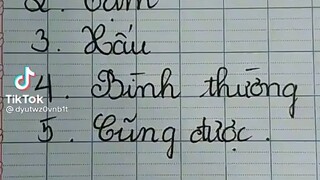 2. Tạm
3. Xấu
4. Bình thường
5. Cũng được.
TikTok
@dyutwz0vnb1t